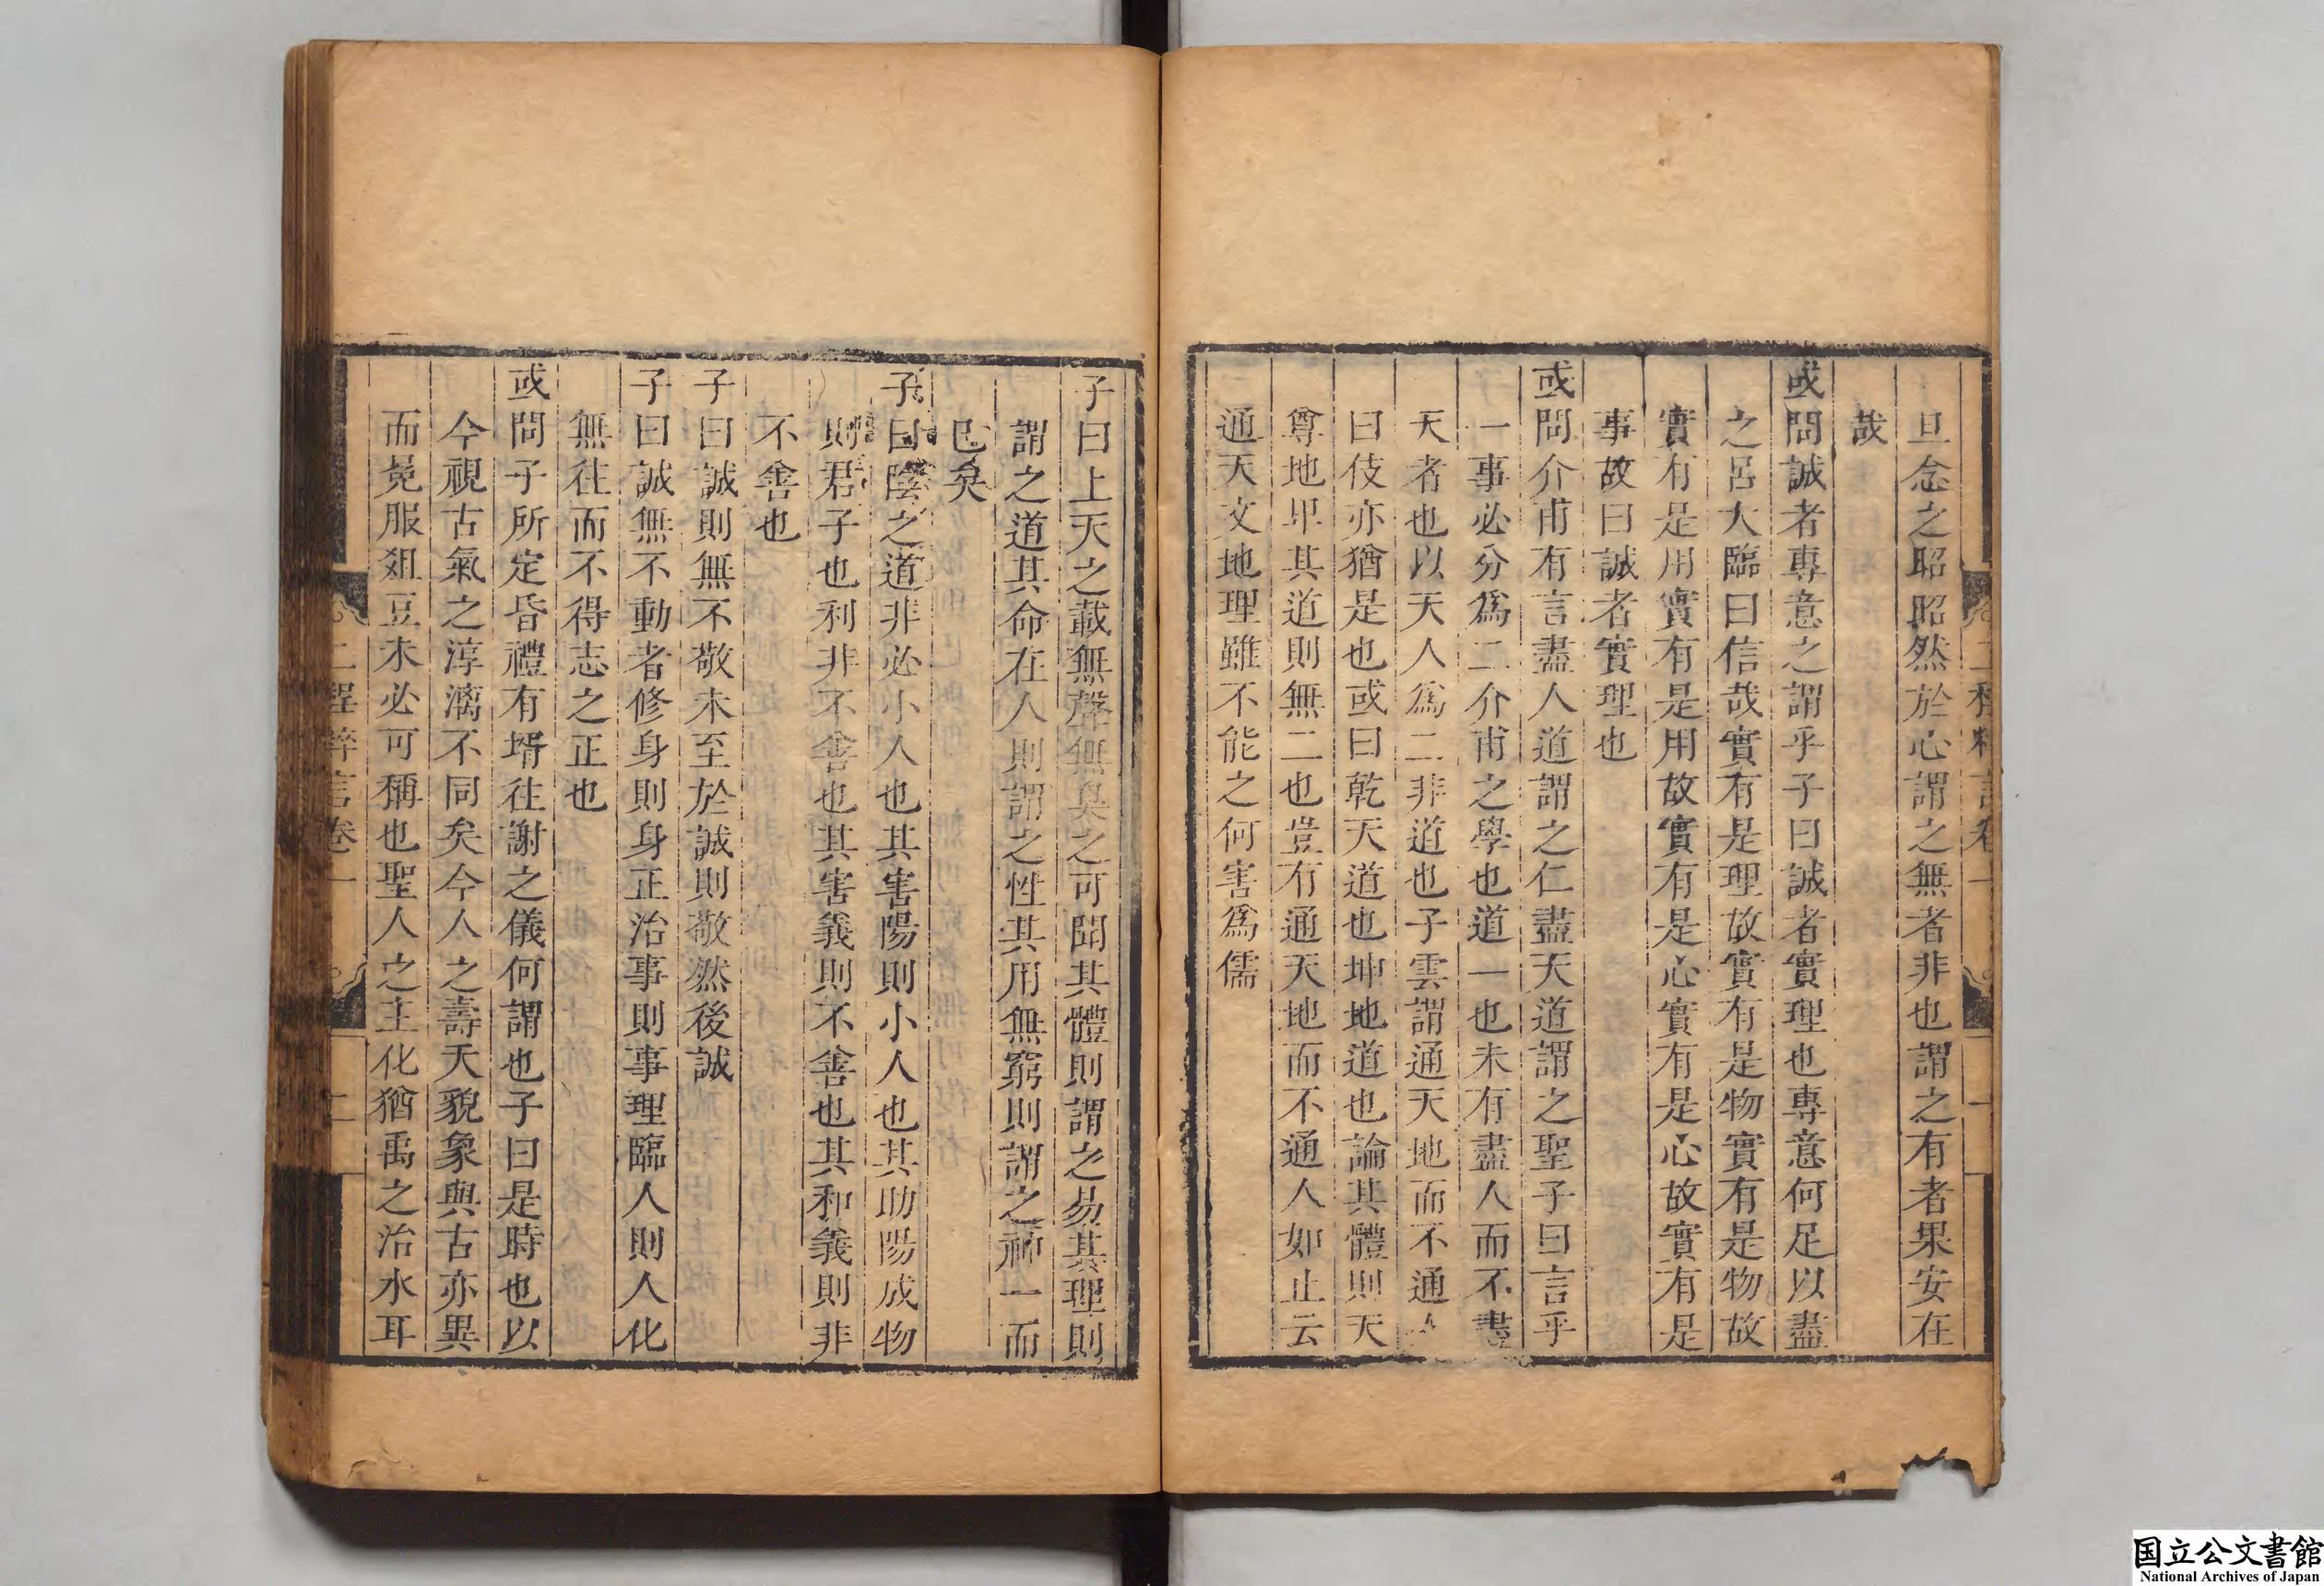 二程粹言卷一
旦念之昭昭然於心謂之無者非也謂之有者果安在
哉
或問誠者專意之謂乎子曰誠者實理也專意何足以盡
之呂大臨曰信哉實有是理故實有是物實有是物故
實有是用實有是用故實有是心實有是心故實有是
事故曰誠者實理也
或問介甫有言盡人道謂之仁盡天道謂之聖子曰言乎
一事必分爲二介甫之學也道一也未有盡人而不盡
天者也以天人爲二非道也子雲謂通天地而不通人
曰伎亦猶是也或曰乾天道也坤地道也論其體則天
尊地卑其道則無二也豈有通天地而不通人如止云
通天文地理雖不能之何害爲儒
子曰上天之載無聲無臭之可聞其體則謂之易其理則
謂之道其命在人則謂之性其用無窮則謂之神一而
已矣
子曰陰之道非必小人也其害陽則小人也其助陽成物
則君子也利非不善也其害義則不善也其和義則非
不善也
子曰誠則無不敬未至於誠則敬然後誠
子曰誠無不動者修身則身正治事則事理臨人則人化
無往而不得志之正也
或問子所定昏禮有壻往謝之儀何謂也子曰是時也以
今視古氣之淳漓不同矣今人之壽夭貌象與古亦異
而冕服俎豆未必可稱也聖人之主化猶禹之治水耳
二程粹言卷一
二
国立公文書館
National Archives of Japan